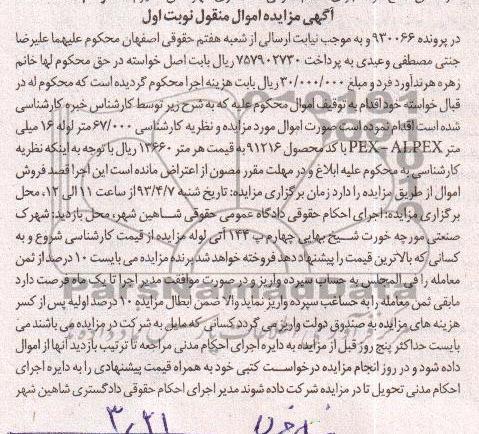 آگهی مزایده اموال منقول نوبت اول
در پرونده ۹۳۰۰۶۶ و به موجب نیابت ارسالی از شعبه هفتم حقوقی اصفهان محکوم علیهما علیرضا
جنتی مصطفی وعبدی به پرداخت ۷۵۷۹۰۲۷۳۰ ریال بابت اصل خواسته در حق محکوم لها خانم
زهره هرندآورد فرد و مبلغ ۳۰/۰۰۰/۰۰۰ ریال بابت هزینه اجرا محکوم گردیده است که محکوم له در
قبال خواسته خود اقدام به توقیف اموال محکوم علیه که به شرح زیر توسط کارشناس خبره کارشناسی
شده است اقدام نموده است صورت اموال مورد مزایده و نظریه کارشناسی ۶۷/۰۰۰متر لوله ۱۶ میلی
متر PEX-ALPEX با کد محصول ۹۱۲۱۶ به قیمت هر متر ۱۳۶۶۰ ریال با توجه به اینکه نظریه
کارشناسی به محکوم علیه ابلاغ و در مهلت مقرر مصون از اعتراض مانده است این اجرا قصد فروش
اموال از طریق مزایده را دارد زمان برگزاری مزایده: تاریخ شنبه ۹۳/۴/۷ از ساعت ۱۱ الی ۱۲، محل
برگزاری مزایده: اجرای احکام حقوقی دادگاه عمومی حقوقی شاهین شهر، محل بازدید: شهرک
صنعتی مورچه خورت شیخ بهایی چهارم پ ۱۴۴ آتی لوله مزایده از قیمت کارشناسی شروع و به
کسانی که بالاترین قیمت را پیشنهاد دهد فروخته خواهد شد برنده مزایده می بایست ۱۰ درصد از ثمن
معامله را فی المجلس به حساب سپرده واریز و در صورت موافقت مدیر اجرا تا یک ماه فرصت دارد
مابقی ثمن معامله را به حساب سپرده واریز نماید والا ضمن ابطال مزایده ۱۰ درصد اولیه پس از کسر
هزینه های مزایده به صندوق دولت واریز می گردد کسانی که مایل به شرکت در مزایده می باشند می
بایست حداکثر پنج روز قبل از مزایده به دایره اجرای احکام مدنی مراجعه تا ترتیب بازدید آنها از اموال
داده شود و در روز انجام مزایده درخواست کتبی خود به همراه قیمت پیشنهادی را به دایره اجرای
احکام مدنی تحویل تا در مزایده شرکت داده شوند مدیر اجرای احکام حقوقی دادگستری شاهین شهر
۳٫۳۱